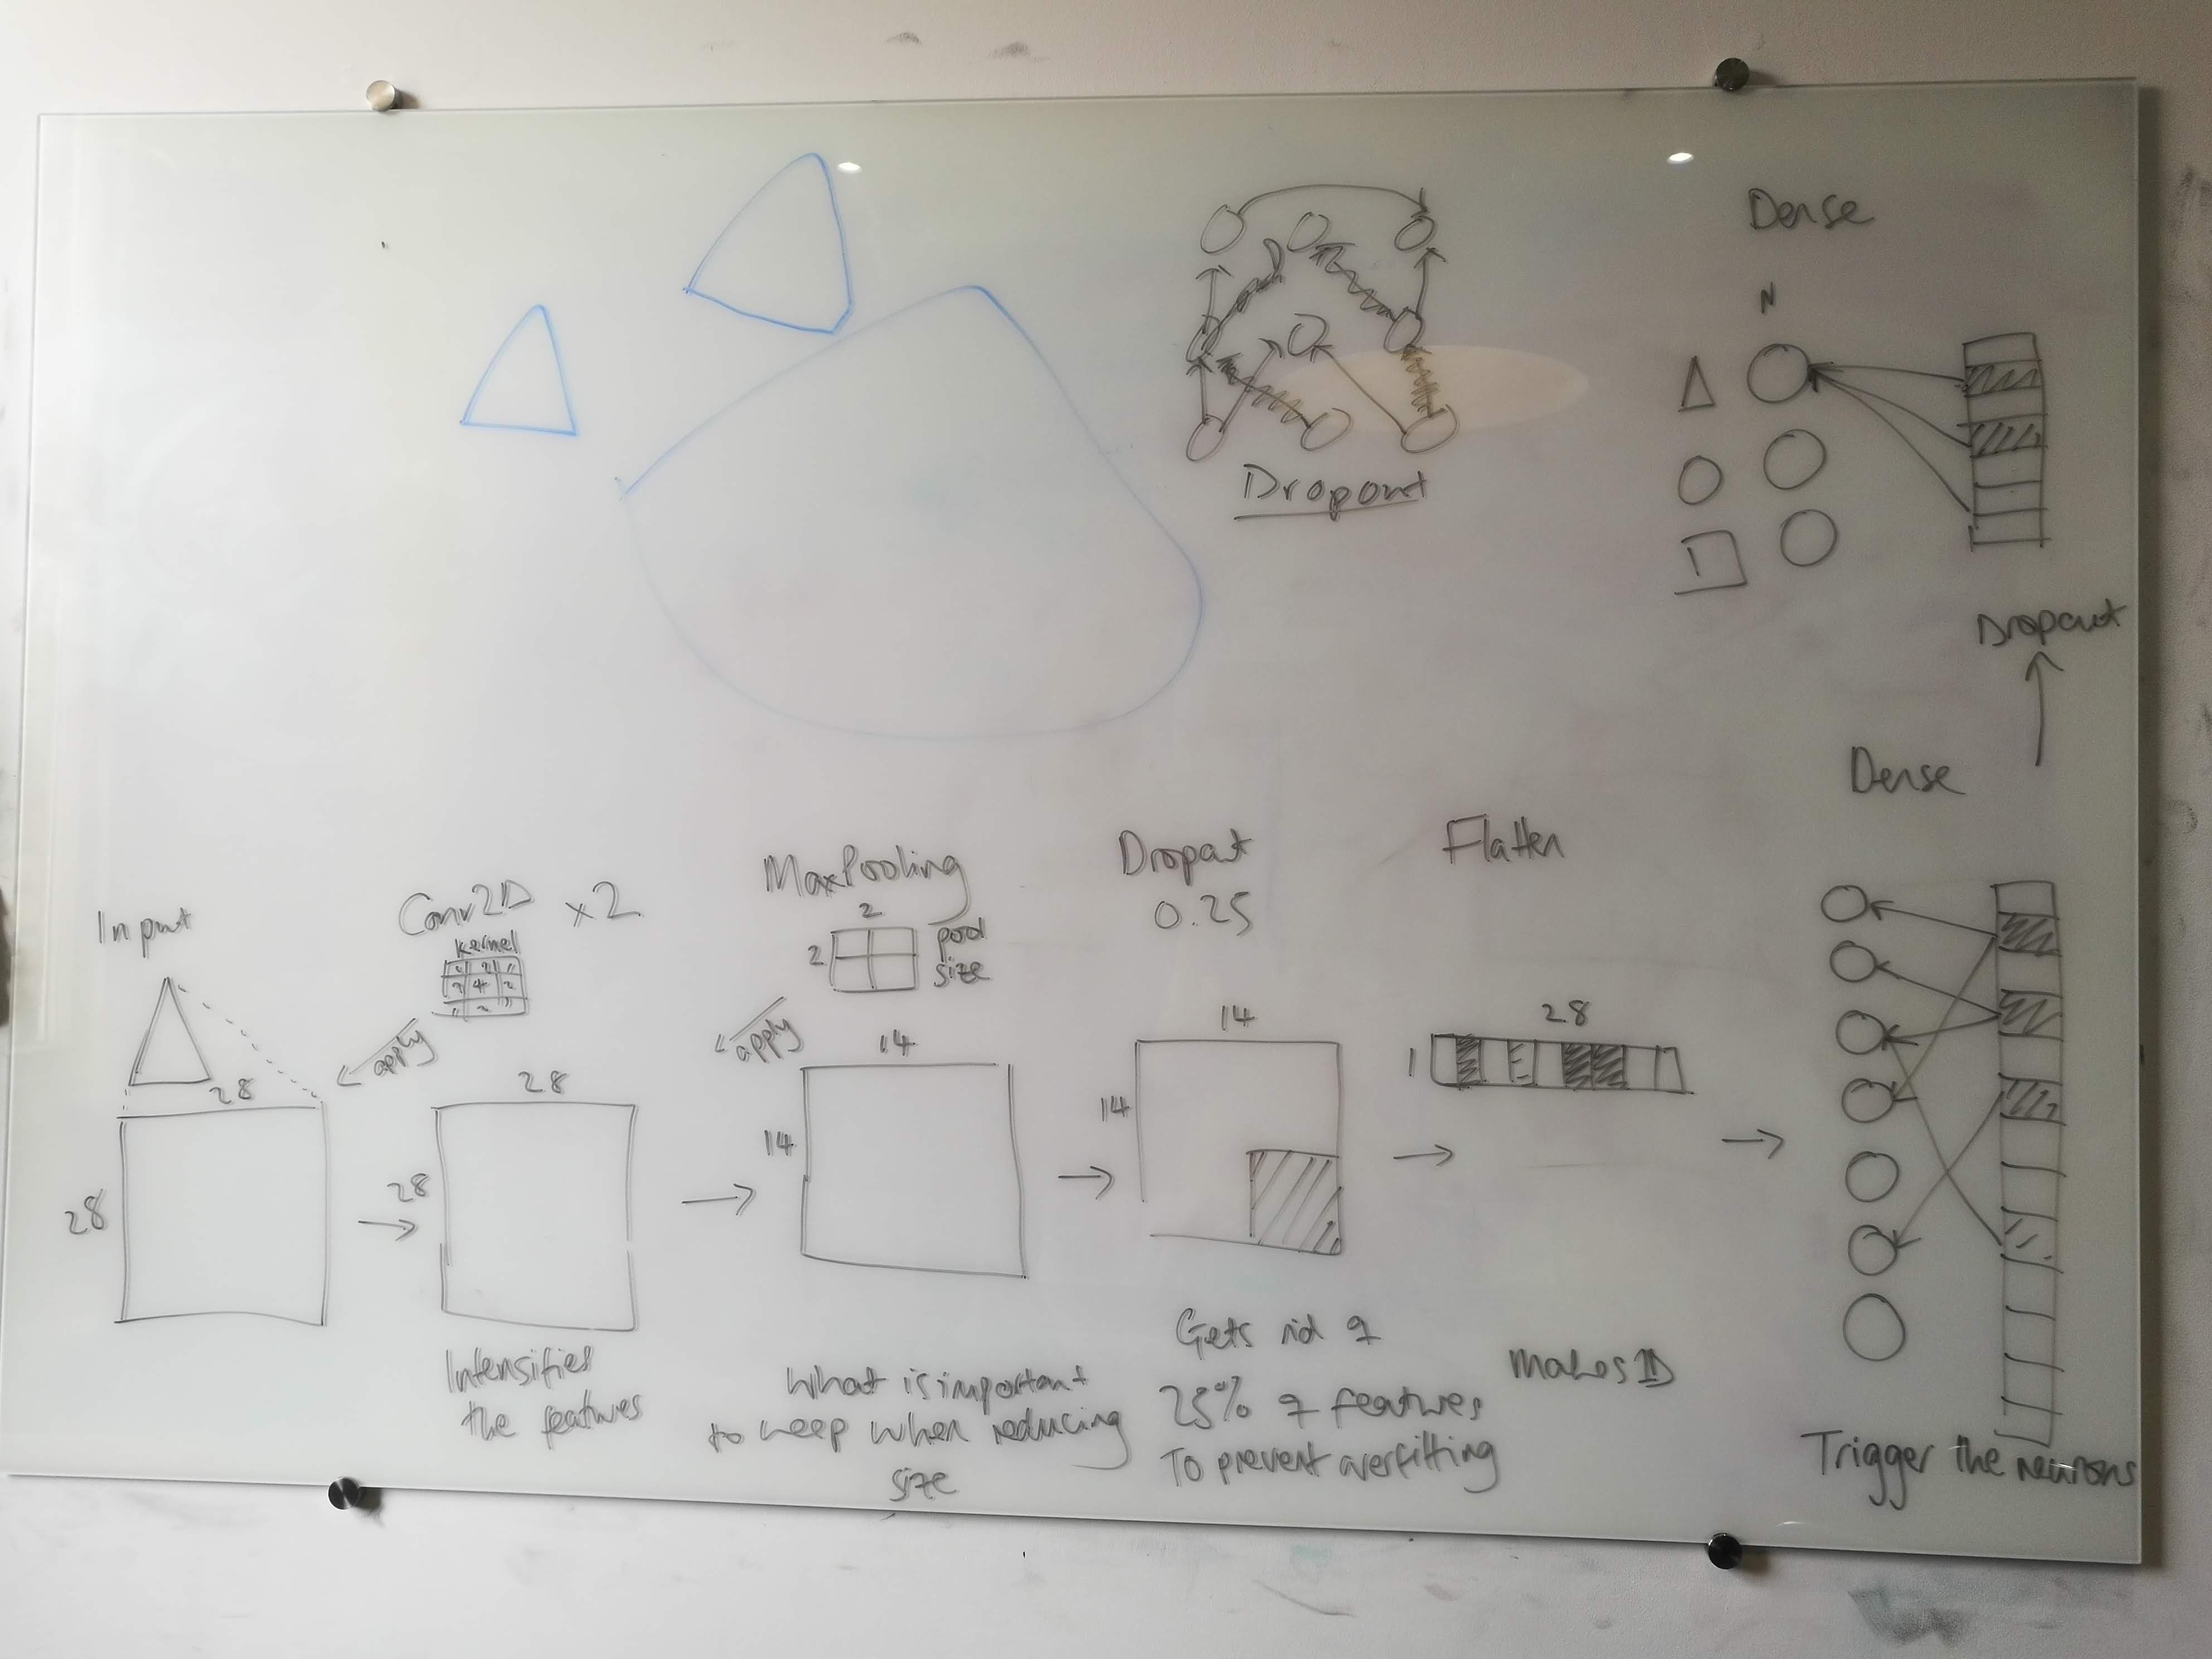 Dense
N
Dropout
Dropout
Dense
Input
28
28
Conv2D x2
kernel
apply
28
28
Intensifies
the features
MaxPooling
2
2
pool
size
apply
14
14
What is important
to keep when reducing
size
Dropout
0.25
14
14
Gets rid of
25% of features
To prevent overfitting
Flatten
28
1
Makes 1D
Trigger the neurons